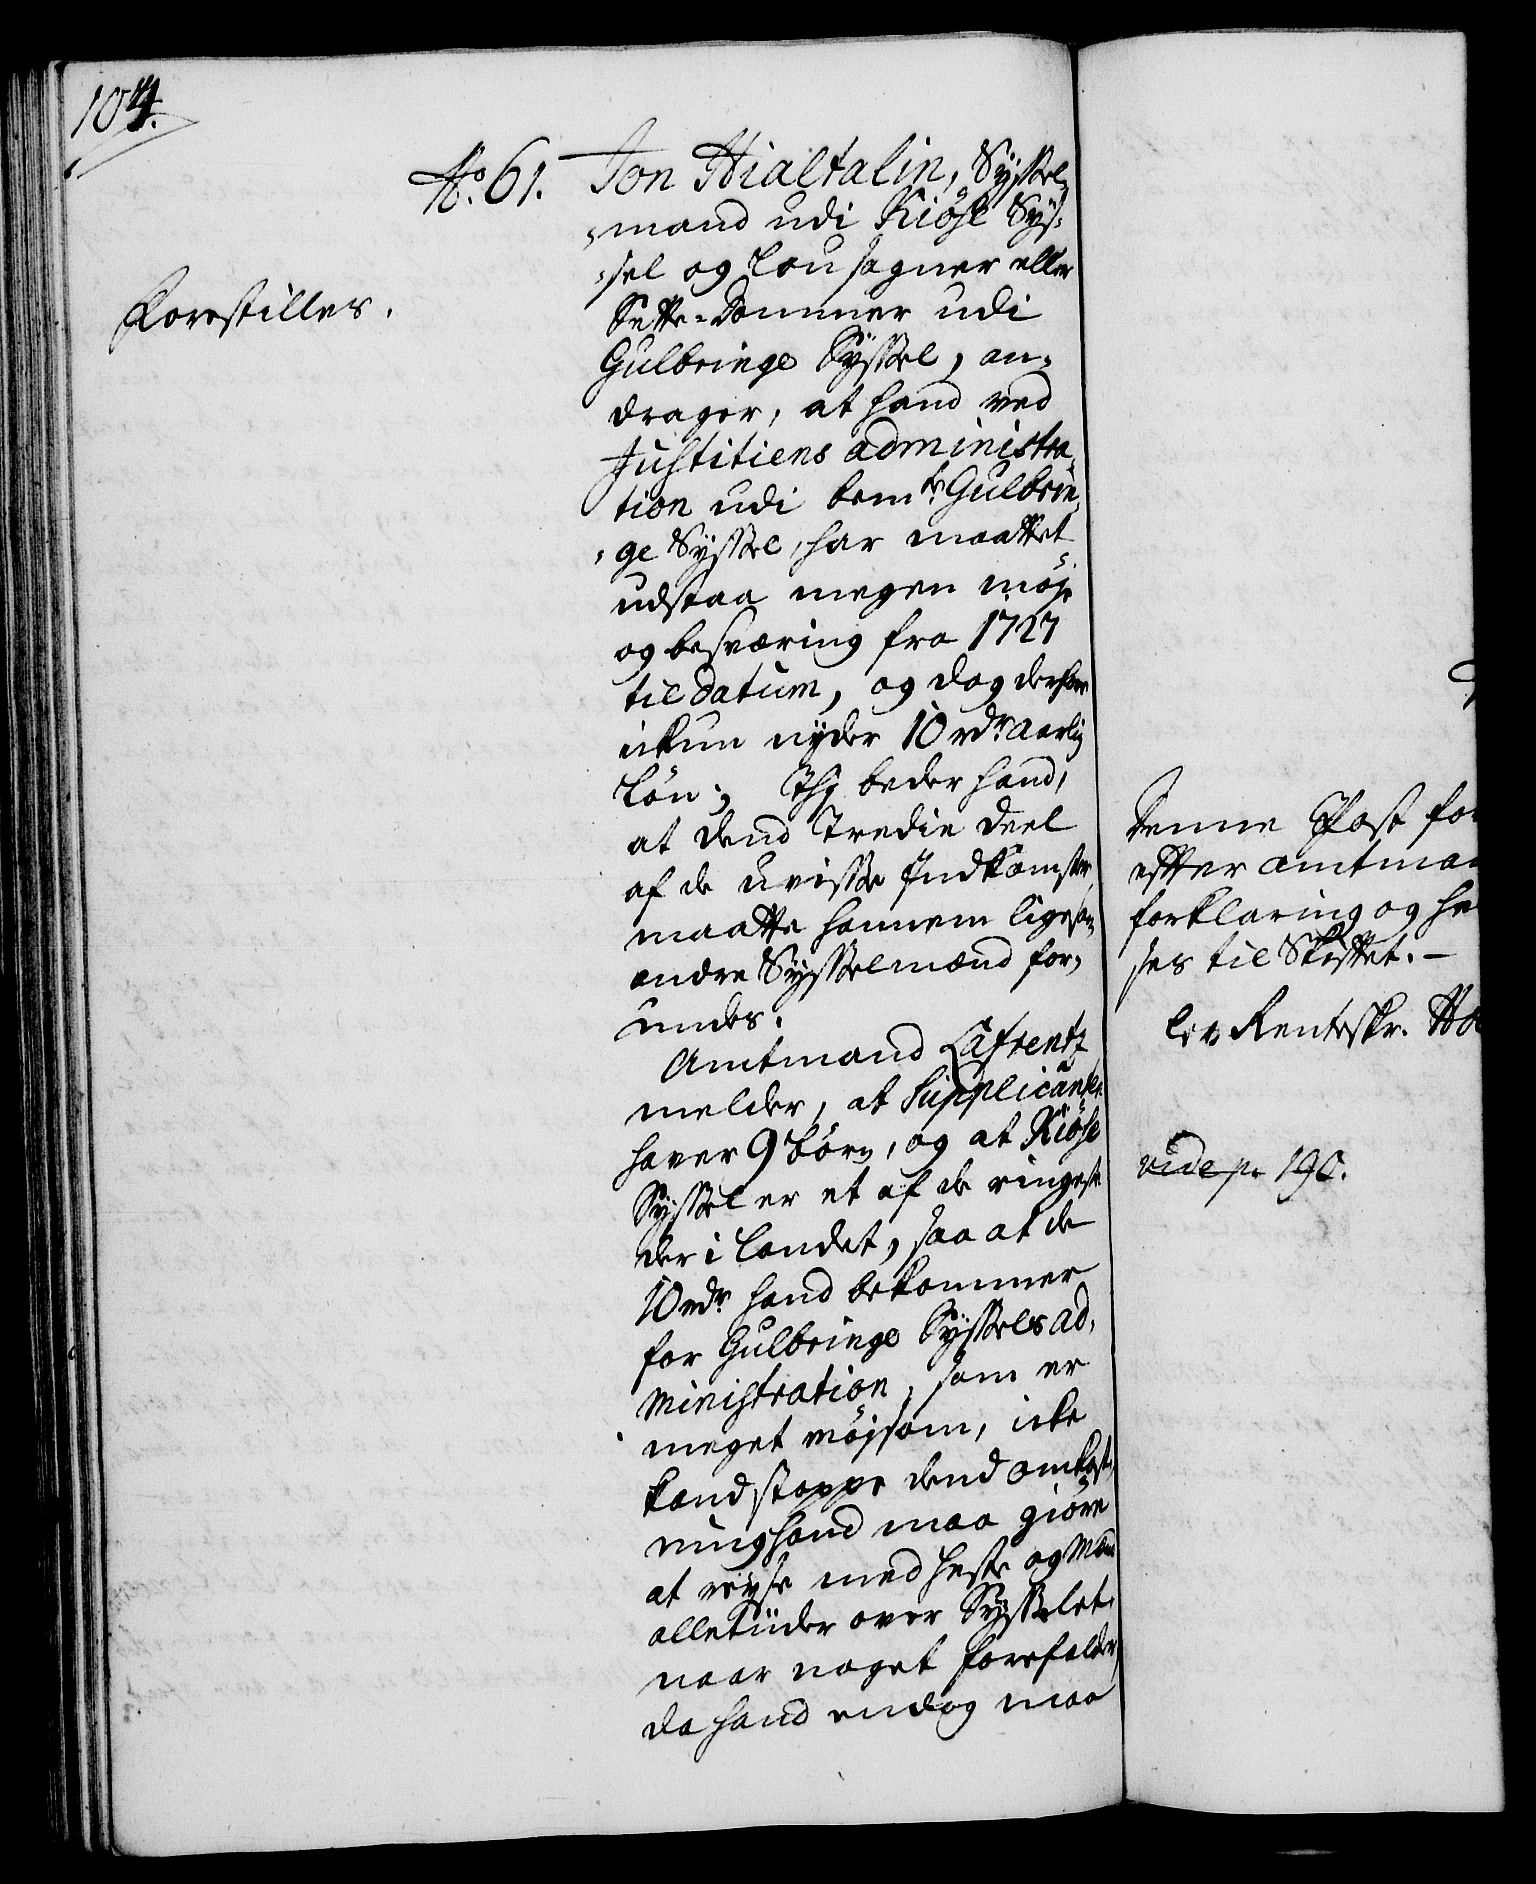 104.
No. 61. Jon Hialtalin, Syssel-
mand udi Kiose Sys-
sel og Lousogner eller
Sette-Dommer udi
Forestilles.
Gulbringe Syssel, an-
drager, at hand ved
Justitiens administra-
tion udi bemte Gulbrin-
ge Syssel, har maattet
udstaa megen möje
og besværing fra 1727
til datum, og dog derfore
ickun nyder 10 rdr aarlig
Lön; Thj beder hand,
at dend Tredie deel
af de uvisse Indkomster
maatte hannem ligesom
andre Sysselmænd for-
undes.
Amtmand Lafrentz
melder, at Supplicanten
haver 9 börn, og at Kiöse
Syssel er et af de ringeste
der i Landet, saa at de
10 rdr hand bekommer
for Gulbringe Syssels ad-
ministration, som er
meget möjsom, icke
kand stoppe dend omkost-
ning hand maa giöre
at reyse med heste og Mand
alletiider over Sysselet,
naar noget forefalder,
da hand endog maa
Denne Post for
efter amtman
forklaring og he
ses til Skiftet. –
lev. Renteskr. Ho
vide p. 190.